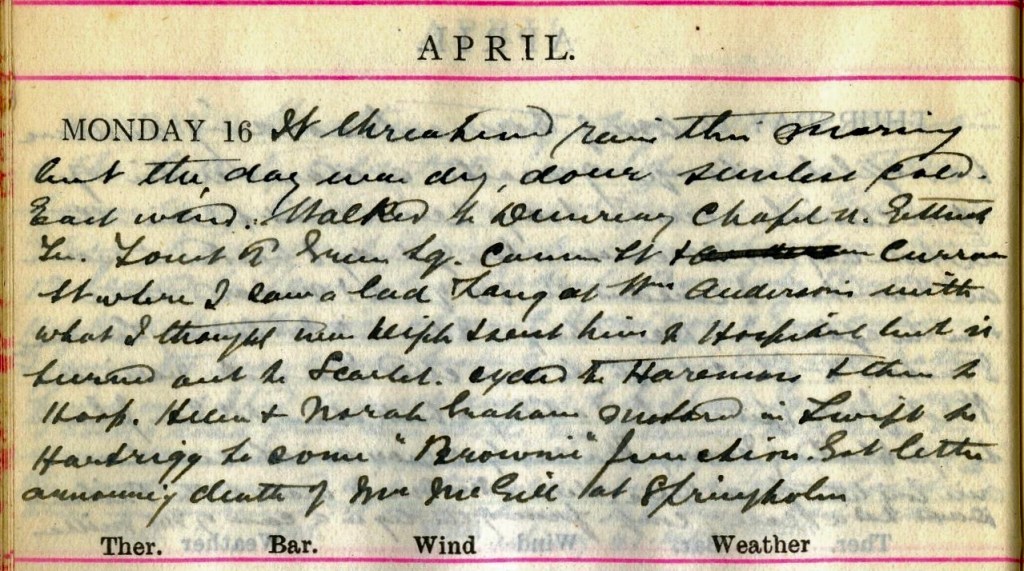 APRIL.
MONDAY 16 It threatened rain this morning
but the, day was dry, dour sunless cold.
East wind. Walked to Chapel
Sq. St &
St where I saw a lad Lang at Wm Anderson's with
what I thought was Diph & sent him to Hospital but it
turned out to Scarlet. cycled to & then to
Hosp. Helen & Norah Graham motored in Swift to
Hardrigg to some "Brownie" function. Got letter
announcing death of Mrs McGill at Springholm
Ther. Bar. Wind Weather